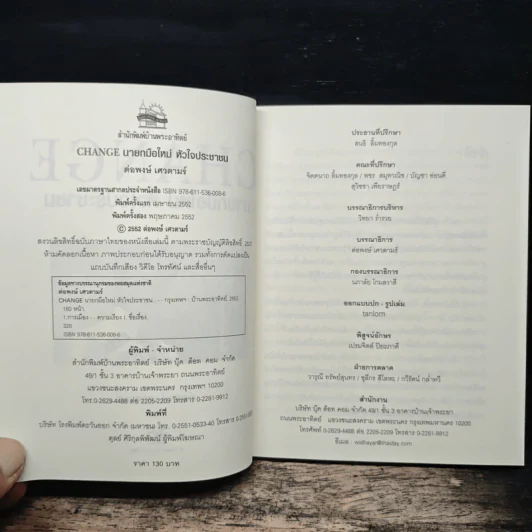 สำนักพิมพ์บ้านพระอาทิตย์
CHANGE นายกมือใหม่ หัวใจประชาชน
ต่อพงษ์ เศวตามร์
เลขมาตรฐานสากลประจำหนังสือ ISBN 978-611-536-008-6
พิมพ์ครั้งแรก เมษายน 2552
พิมพ์ครั้งสอง พฤษภาคม 2552
© 2552 ต่อพงษ์ เศวตามร์
สงวนลิขสิทธิ์ฉบับภาษาไทยของหนังสือเล่มนี้ ตามพระราชบัญญัติลิขสิทธิ์ 2521
ห้ามคัดลอกเนื้อหา ภาพประกอบก่อนได้รับอนุญาต รวมทั้งการดัดแปลงเป็น
แถบบันทึกเสียง วิดีโอ โทรทัศน์ และสื่ออื่นๆ
ข้อมูลทางบรรณานุกรมของหอสมุดแห่งชาติ
ต่อพงษ์ เศวตามร์
CHANGE นายกมือใหม่ หัวใจประชาชน. -- กรุงเทพฯ : บ้านพระอาทิตย์, 2552
160 หน้า
1.การเมือง -- ความเรียง I. ชื่อเรื่อง.
320
ISBN 978-611-536-008-6
ผู้พิมพ์ - จำหน่าย
สำนักพิมพ์บ้านพระอาทิตย์ บริษัท บุ๊ค ด็อท คอม จำกัด
49/1 ชั้น 3 อาคารบ้านเจ้าพระยา ถนนพระอาทิตย์
แขวงชนะสงคราม เขตพระนคร กรุงเทพฯ 10200
โทร.0-2629-4488 ต่อ 2205-2209 โทรสาร 0-2281-9912
พิมพ์ที่
บริษัท โรงพิมพ์ตะวันออก จำกัด มหาชน โทร. 0-2551-0533-40 โทรสาร 0-2551-
ดุลย์ ศิริกุลพิพัฒน์ ผู้พิมพ์โฆษณา
ราคา 130 บาท
ประธานที่ปรึกษา
สนธิ ลิ้มทองกุล
คณะที่ปรึกษา
จิตตนาถ ลิ้มทองกุล / พชร สมุทวณิช / บัญชา อ่อนดี
สุวิชชา เพียราษฎร์
บรรณาธิการบริหาร
วิทยา ร่ำรวย
บรรณาธิการ
ต่อพงษ์ เศวตามร์
กองบรรณาธิการ
นภาลัย โกมลวาสี
ออกแบบปก - รูปเล่ม
taniom
พิสูจน์อักษร
เปรมจิตต์ ปิยะภาดี
ฝ่ายการตลาด
วารุณี ทรัพย์สุนทร / ชุลีกร สีโสทะ / ทวีรัตน์ กล้าทวี
สำนักงาน
บริษัท บุ๊ค ด็อท คอม จำกัด 49/1 ชั้น 3 อาคารบ้านเจ้าพระยา
ถนนพระอาทิตย์ แขวงชนะสงคราม เขตพระนคร กรุงเทพมหานคร 10200
โทรศัพท์ 0-2629-4488 ต่อ 2205-2209 โทรสาร 0-2281-9912
อีเมล : widhaya@thaiday.com